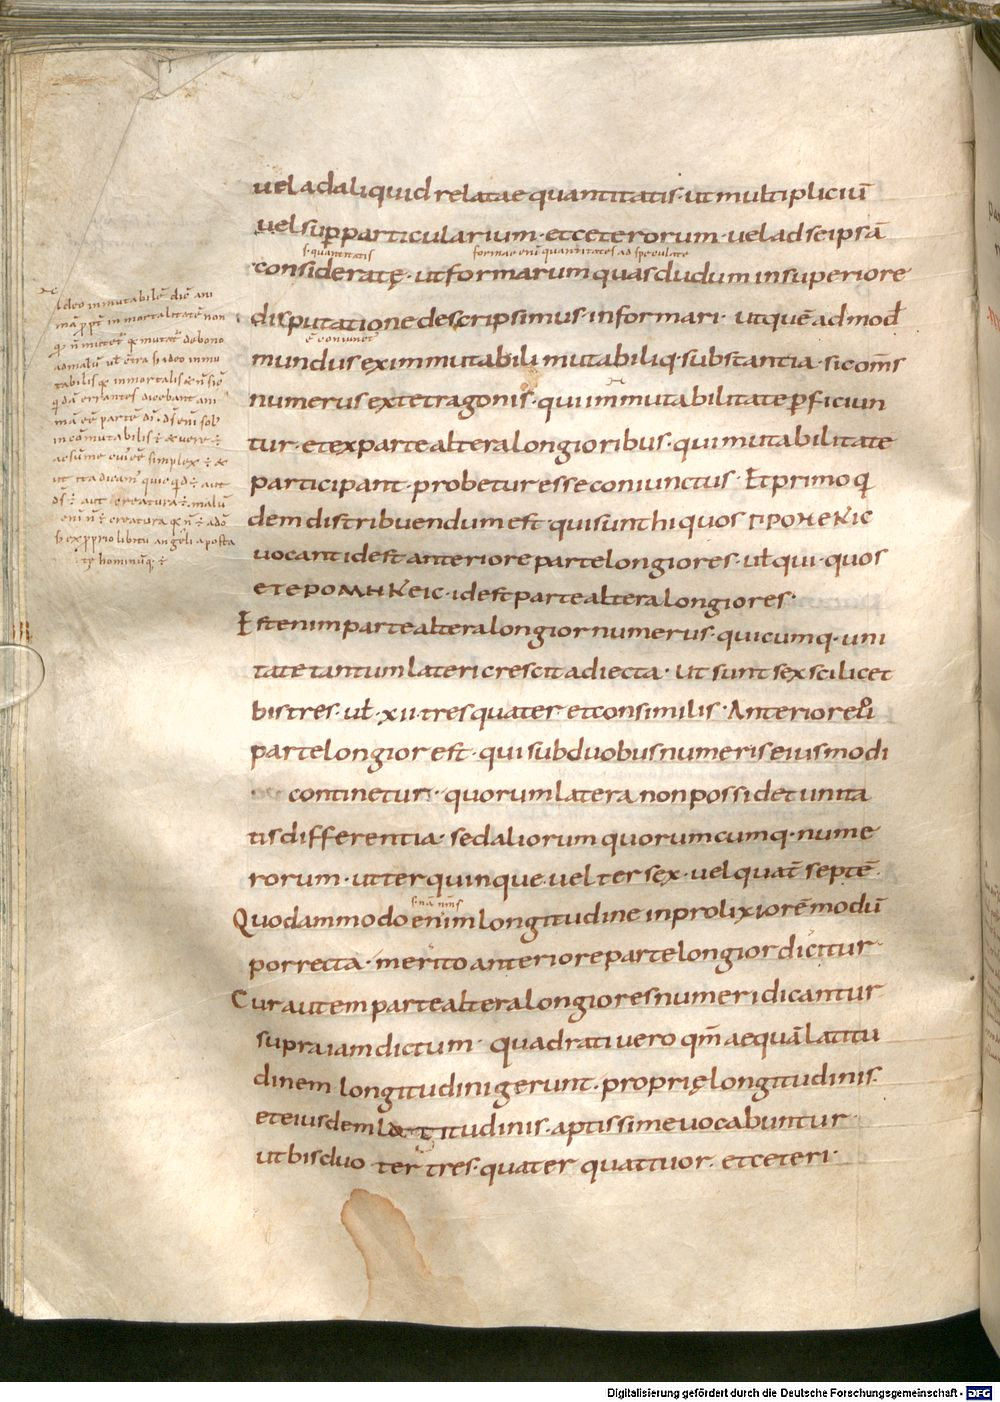 uel ad aliquid relatae quantitatis · ut multipliciū
uel supparticularium · et ceterorum · uel ad se ipsā
s· quantitatis formae eni quantitates ad se speculatę
consideratę · ut formarum quas dudum in superiore
disputatione descripsimus · informari · ut quē ad mod
mundus ex immutabili mutabiliq · substantia · sic om̄s
numerus ex tetragonis · qui inmutabilitate pficiun
tur · et ex parte altera longioribus · qui mutabilitate
participant · probetur esse coniunctus · Et primo q
dem distribuendum est qui sunt hi quos ΠΡΟΜΕΚΙC
uocant id est anteriore parte longiores · ul qui · quos
ΕΤΕΡΟΜΗΚΕΙC · id est parte altera longiores ·
Est enim parte altera longior numerus · quicumq · uni
tate tantum lateri crescit adiecta · Ut sunt sex scilicet
bis tres · ul · xii · tres quater · et consimilis · Anteriore ū
parte longior est · qui sub duobus numeris eiusmodi
continetur · quorum latera non possidet unita
tis differentia · sed aliorum quorumcumq · nume
rorum · ut ter quinque uel ter sex · uel quat septē ·
Quodammodo enim longitudine in prolixiorē modū
porrecta · merito anteriore parte longior dicitur ·
Cur autem parte altera longiores numeri dicantur ·
supra iam dictum · quadrati uero qm̄ aequā latitu
dinem longitudini gerunt · proprię longitudinis ·
et eiusdem latitudinis · aptissime uocabuntur ·
ut bis duo ter tres · quater quattuor · et ceteri ·
Ideo inmutabilē
tabilis inmortalis
errantes dicebant ani
simplex
creatura malū
angeli aposta
Digitalisierung gefördert durch die Deutsche Forschungsgemeinschaft - DFG